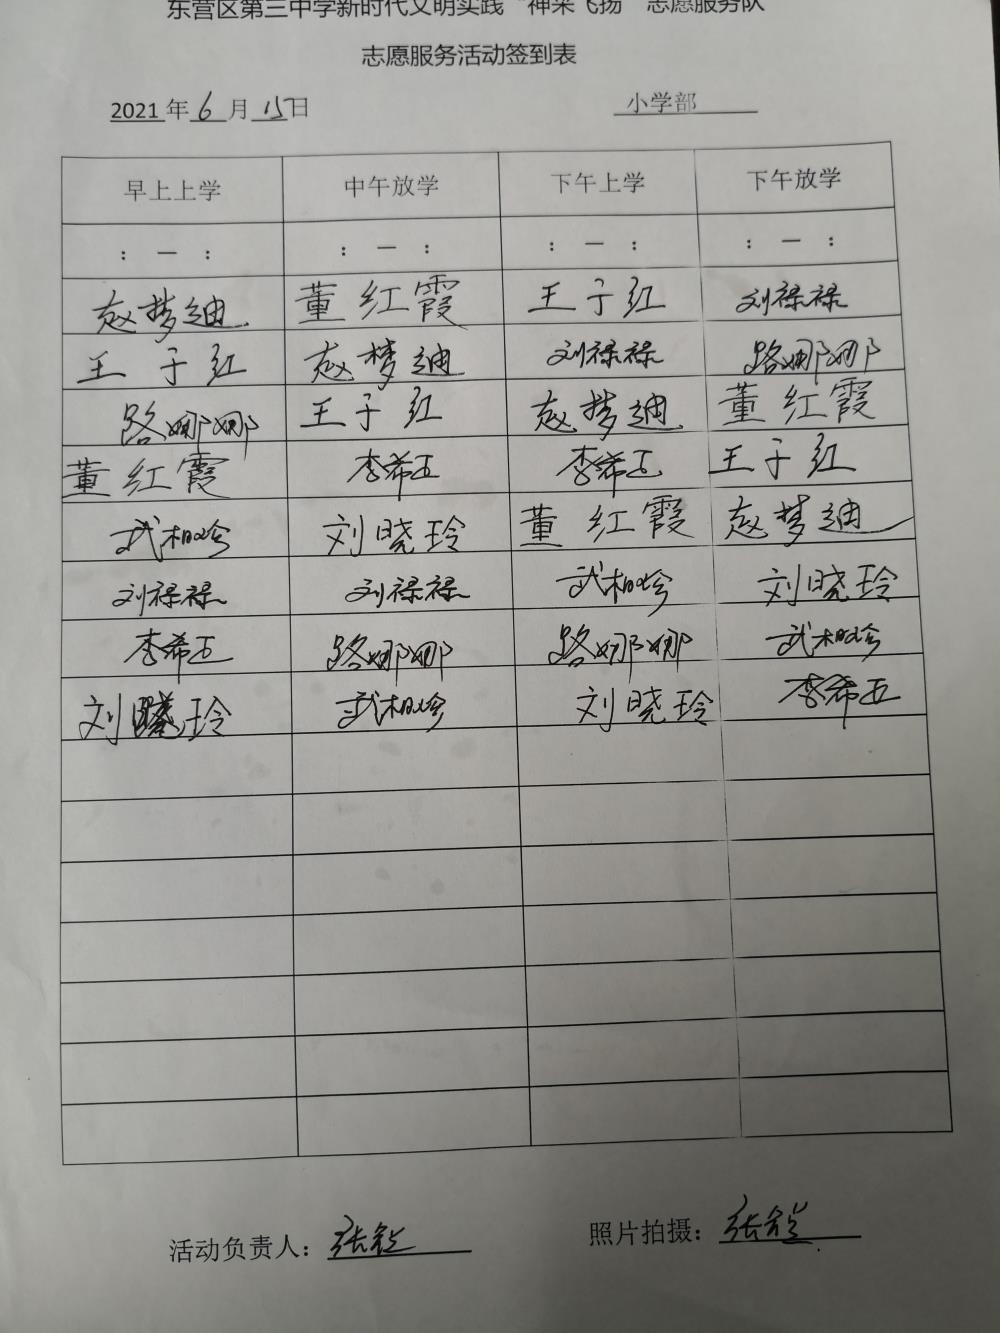 东营区第三中学新时代文明实践“神采飞扬”志愿服务队
志愿服务活动签到表
2021 年 6 月 15 日 小学部
早上上学 中午放学 下午上学 下午放学
： — ： ： — ： ： — ： ： — ：
赵梦迪 董红霞 王子红 刘禄禄
王子红 赵梦迪 刘禄禄 路娜娜
路娜娜 王子红 赵梦迪 董红霞
董红霞 李希正 李希正 王子红
武相珍 刘晓玲 董红霞 赵梦迪
刘禄禄 刘禄禄 武相珍 刘晓玲
李希正 路娜娜 路娜娜 武相珍
刘晓玲 武相珍 刘晓玲 李希正
活动负责人：张 照片拍摄：张